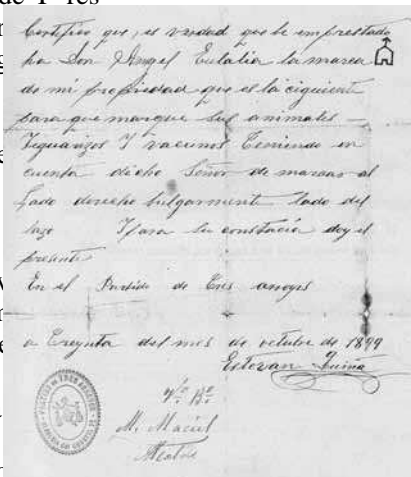 de T res
Certifico que, es verdad que he emprestado
ha Don Angel Eulalia la marca
de mi propiedad que es la ciguiente
para que marque sus animales —
Yeguarizos Y vacunos Teniendo en
cuenta dicho Señor de marcar al
lado derecho bulgarmente lado del
lazo Y para su constacia doy el
presente
En el Partido de Tres arroyos
a Treynta del mes de octubre de 1899
Estevan
Vº Bº
M. Maciel
Alcalde